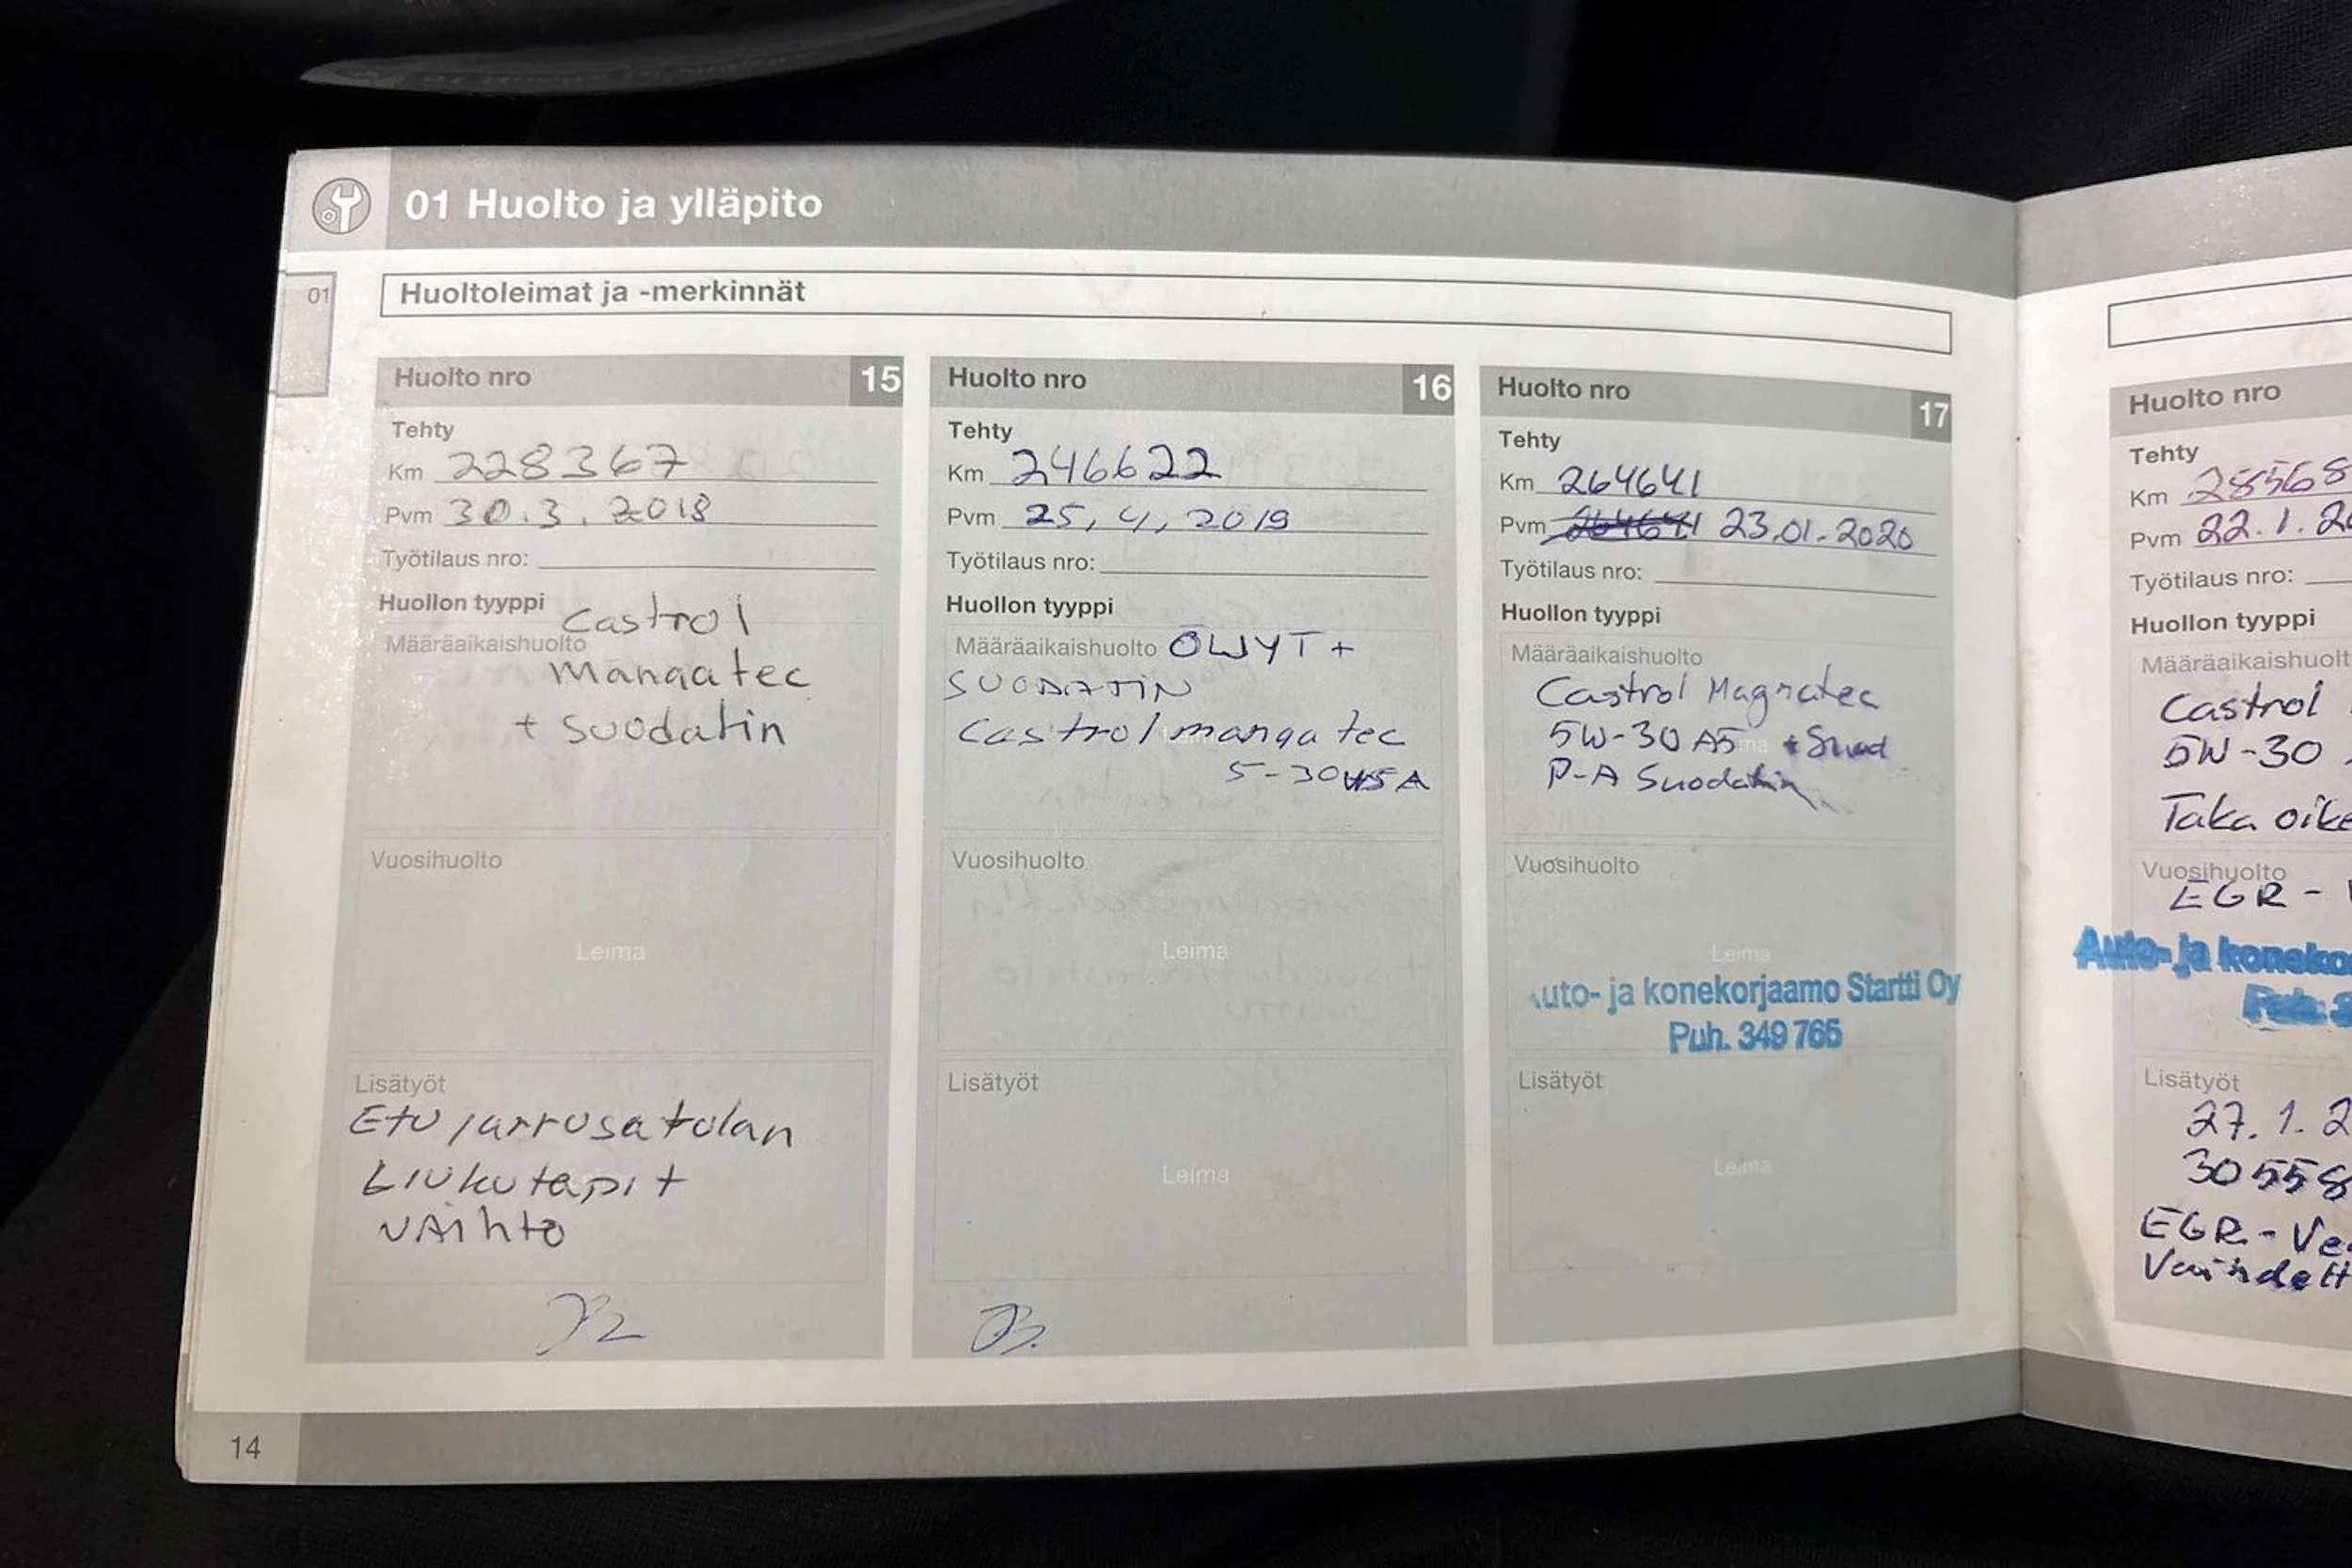 01 Huolto ja ylläpito
01
Huoltoleimat ja -merkinnät
Huolto nro 15
Tehty
Km 228367
Pvm 30.3.2018
Työtilaus nro:
Huollon tyyppi Castrol
Määräaikaishuolto
Mangatec
+ suodatin
Vuosihuolto
Leima
Lisätyöt
Etu jarrusatulan
Liukutapit
VAihto
Huolto nro 16
Tehty
Km 246622
Pvm 25,4,2019
Työtilaus nro:
Huollon tyyppi
Määräaikaishuolto ÖLJYT +
SUODATIN
Castrol mangatec
5-30W5A
Vuosihuolto
Leima
Lisätyöt
Leima
Huolto nro 17
Tehty
Km 264641
Pvm 264641 23.01.2020
Työtilaus nro:
Huollon tyyppi
Määräaikaishuolto
Castrol Magnatec
5W-30 A5 + Suod
P-A Suodatin
Vuosihuolto
Leima
Auto- ja konekorjaamo Startti Oy
Puh. 349 765
Lisätyöt
Leima
Huolto nro
Tehty
Km 28568
Pvm 22.1.2
Työtilaus nro:
Huollon tyyppi
Määräaikaishuolt
Castrol
5W-30
Taka oike
Vuosihuolto
EGR -
Auto- ja koneko
Puh. 3
Lisätyöt
27.1.2
30558
EGR-Ve
Vaihdett
14